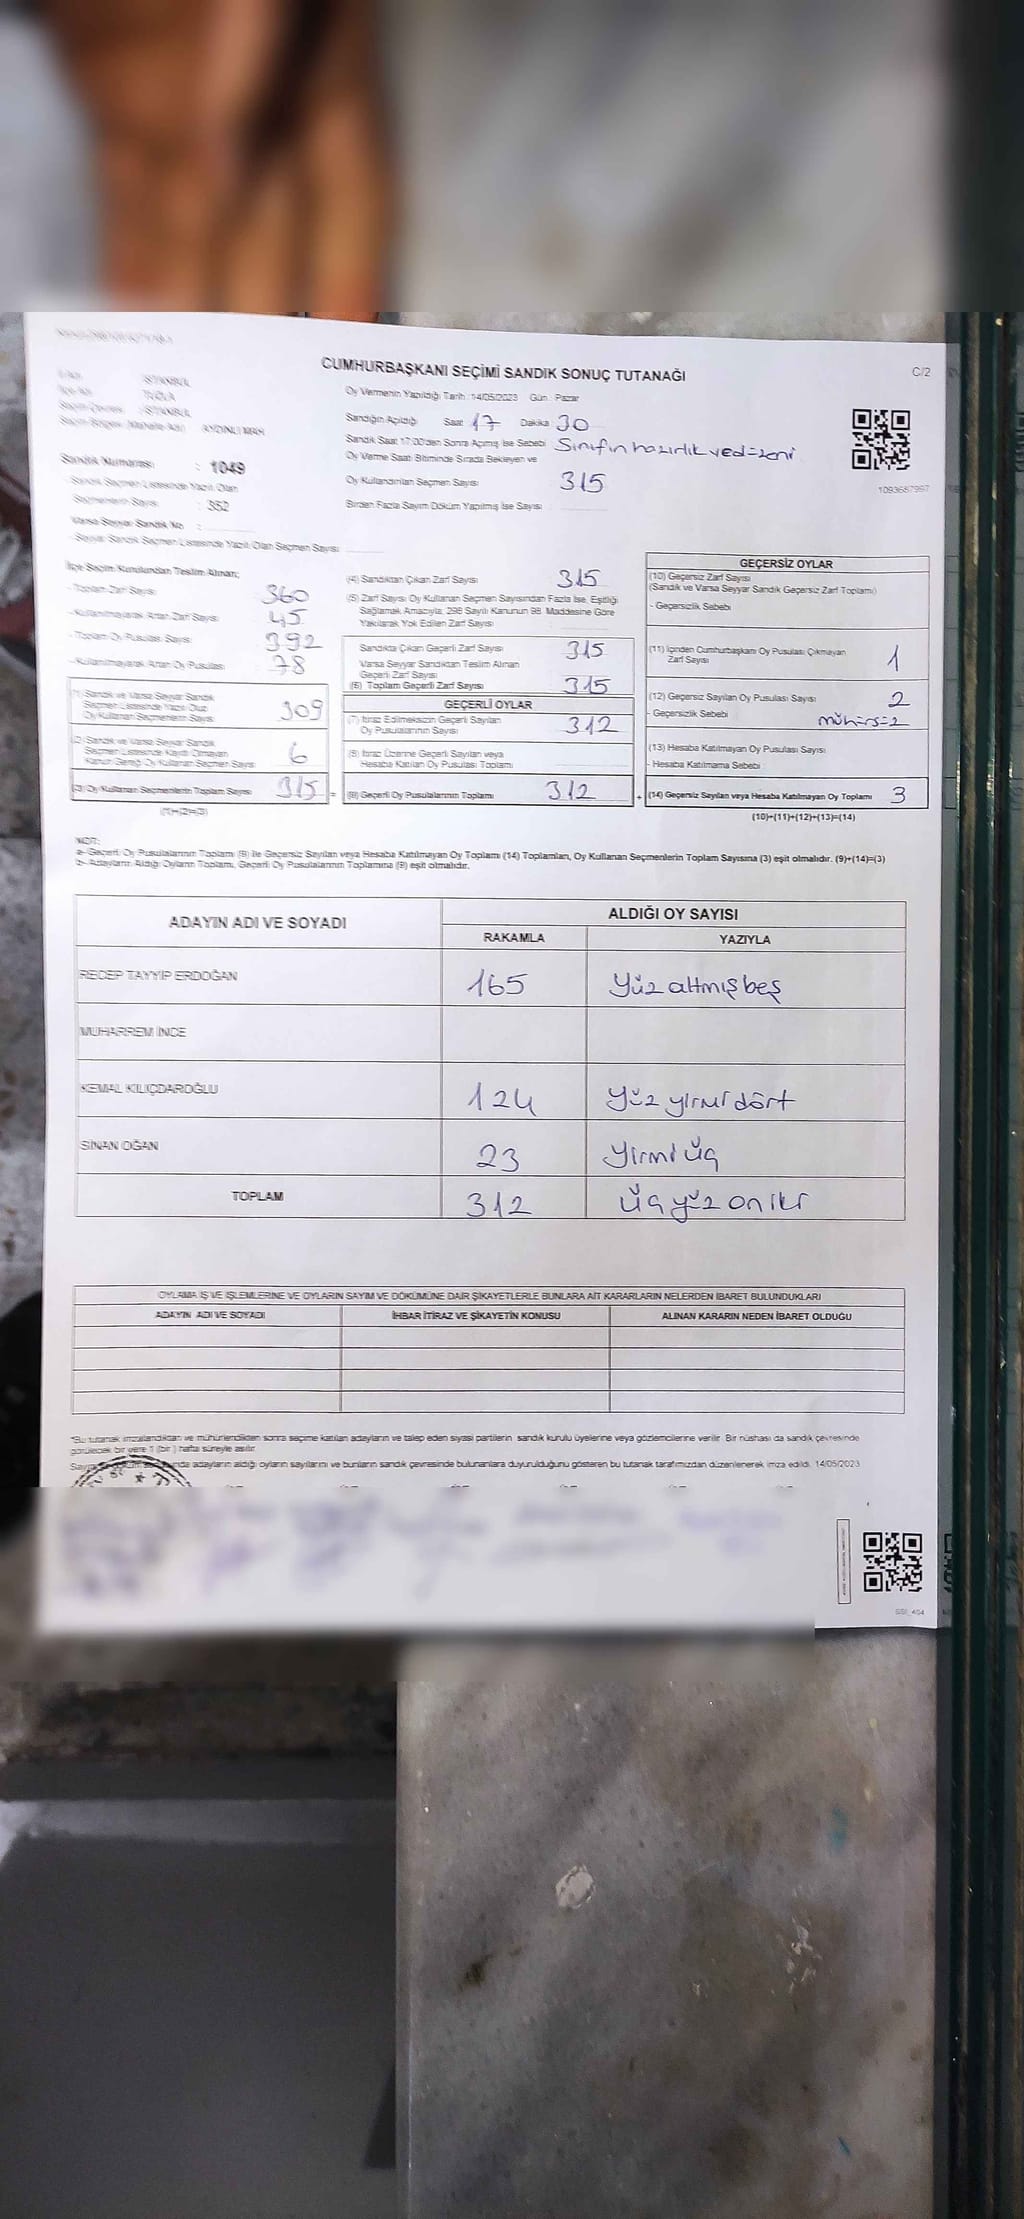 CUMHURBAŞKANI SEÇİMİ SANDIK SONUÇ TUTANAĞI
C/2
İSTANBUL
TUZLA
İSTANBUL
AYDINLI MAH
Sandık Numarası : 1049
Sandık Seçmen Listesinde Yazılı Olan
Seçmenlerin Sayısı : 352
Varsa Seyyar Sandık No :
- Seyyar Sandık Seçmen Listesinde Yazılı Olan Seçmen Sayısı
Oy Vermenin Yapıldığı Tarih : 14/05/2023 Gün : Pazar
Sandığın Açıldığı Saat 17 Dakika 30
Sandık Saat 17:00'den Sonra Açılmış İse Sebebi Sınıfın hazırlık ve düzeni
Oy Verme Saati Bitiminde Sırada Bekleyen ve
Oy Kullandırılan Seçmen Sayısı 315
Birden Fazla Sayım Döküm Yapılmış İse Sayısı
1093687997
İlçe Seçim Kurulundan Teslim Alınan;
- Toplam Zarf Sayısı 360
- Kullanılmayarak Artan Zarf Sayısı 45
- Toplam Oy Pusulası Sayısı 392
- Kullanılmayarak Artan Oy Pusulası 78
(1) Sandık ve Varsa Seyyar Sandık
Seçmen Listesinde Yazılı Olup
Oy Kullanan Seçmenlerin Sayısı 309
(2) Sandık ve Varsa Seyyar Sandık
Seçmen Listesinde Kayıtlı Olmayan
Kanun Gereği Oy Kullanan Seçmen Sayısı 6
(3) Oy Kullanan Seçmenlerin Toplam Sayısı 315 =
(1)+(2)=(3)
(4) Sandıktan Çıkan Zarf Sayısı 315
(5) Zarf Sayısı Oy Kullanan Seçmen Sayısından Fazla İse, Eşitliği
Sağlamak Amacıyla, 298 Sayılı Kanunun 98. Maddesine Göre
Yakılarak Yok Edilen Zarf Sayısı
Sandıkta Çıkan Geçerli Zarf Sayısı 315
Varsa Seyyar Sandıktan Teslim Alınan
Geçerli Zarf Sayısı
(6) Toplam Geçerli Zarf Sayısı 315
GEÇERLİ OYLAR
(7) İtiraz Edilmeksizin Geçerli Sayılan
Oy Pusulalarının Sayısı 312
(8) İtiraz Üzerine Geçerli Sayılan veya
Hesaba Katılan Oy Pusulası Toplamı
(9) Geçerli Oy Pusulalarının Toplamı 312 +
GEÇERSİZ OYLAR
(10) Geçersiz Zarf Sayısı
(Sandık ve Varsa Seyyar Sandık Geçersiz Zarf Toplamı)
- Geçersizlik Sebebi
(11) İçinden Cumhurbaşkanı Oy Pusulası Çıkmayan
Zarf Sayısı 1
(12) Geçersiz Sayılan Oy Pusulası Sayısı 2
- Geçersizlik Sebebi
(13) Hesaba Katılmayan Oy Pusulası Sayısı
- Hesaba Katılmama Sebebi
(14) Geçersiz Sayılan veya Hesaba Katılmayan Oy Toplamı 3
(10)+(11)+(12)+(13)=(14)
NOT:
a- Geçerli Oy Pusulalarının Toplamı (9) ile Geçersiz Sayılan veya Hesaba Katılmayan Oy Toplamı (14) Toplamları, Oy Kullanan Seçmenlerin Toplam Sayısına (3) eşit olmalıdır. (9)+(14)=(3)
b- Adayların Aldığı Oyların Toplamı, Geçerli Oy Pusulalarının Toplamına (9) eşit olmalıdır.
ADAYIN ADI VE SOYADI
ALDIĞI OY SAYISI
RAKAMLA YAZIYLA
RECEP TAYYİP ERDOĞAN 165 Yüz altmış beş
MUHARREM İNCE
KEMAL KILIÇDAROĞLU 124 Yüz yirmi dört
SİNAN OĞAN 23 Yirmi üç
TOPLAM 312 Üç yüz on iki
OYLAMA İŞ VE İŞLEMLERİNE VE OYLARIN SAYIM VE DÖKÜMÜNE DAİR ŞİKAYETLERLE BUNLARA AİT KARARLARIN NELERDEN İBARET BULUNDUKLARI
ADAYIN ADI VE SOYADI İHBAR İTİRAZ VE ŞİKAYETİN KONUSU ALINAN KARARIN NEDEN İBARET OLDUĞU
*Bu tutanak imzalandıktan ve mühürlendikten sonra seçime katılan adayların ve talep eden siyasi partilerin sandık kurulu üyelerine veya gözlemcilerine verilir. Bir nüshası da sandık çevresinde
görülecek bir yere 1 (bir) hafta süreyle asılır.
adayların aldığı oyların sayılarını ve bunların sandık çevresinde bulunanlara duyurulduğunu gösteren bu tutanak tarafımızdan düzenlenerek imza edildi. 14/05/2023